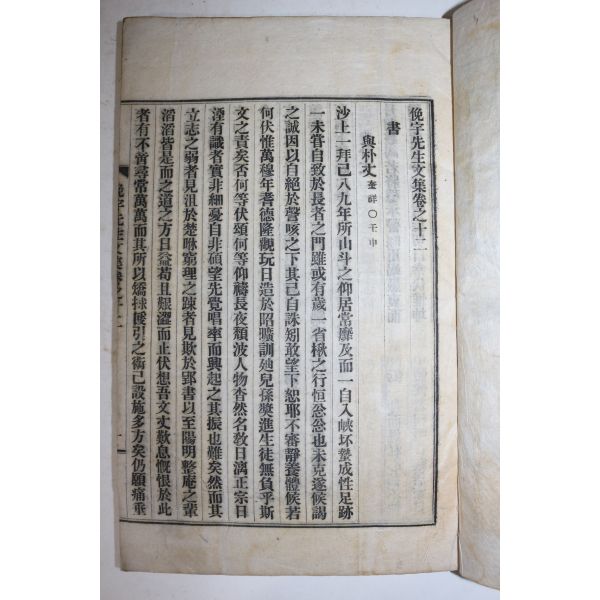 俛宇先生文集卷之十二
書
與朴丈 奎祥○壬申
沙上一拜已八九年所山斗之仰居常靡及而一自入峽坏蟄成性足跡
一未甞自致於長者之門雖或有歲一省楸之行恒忩忩也未克遂候謁
之誠因以自絕於謦咳之下其已自誅矧敢望下恕耶不審靜養體候若
何伏惟萬穆年耆德隆觀玩日造於昭曠訓廸兒孫奬進生徒無負乎斯
文之責矣否何等伏頌何等仰禱長夜頹波人物杳然名敎日漓正宗日
湮有識者實非細憂自非碩望先覺唱率而興起之其振也難矣然而其
立志之弱者見沮於楚咻窮理之踈者見欺於郢書以至陽明整庵之輩
滔滔皆是而之道之方日益苟且艱澀而止伏想吾文丈歎息慨恨於此
者有不啻尋常萬萬而其所以矯捄援引之術已設施多方矣仍願痛垂
俛宇先生文集卷之十二 一